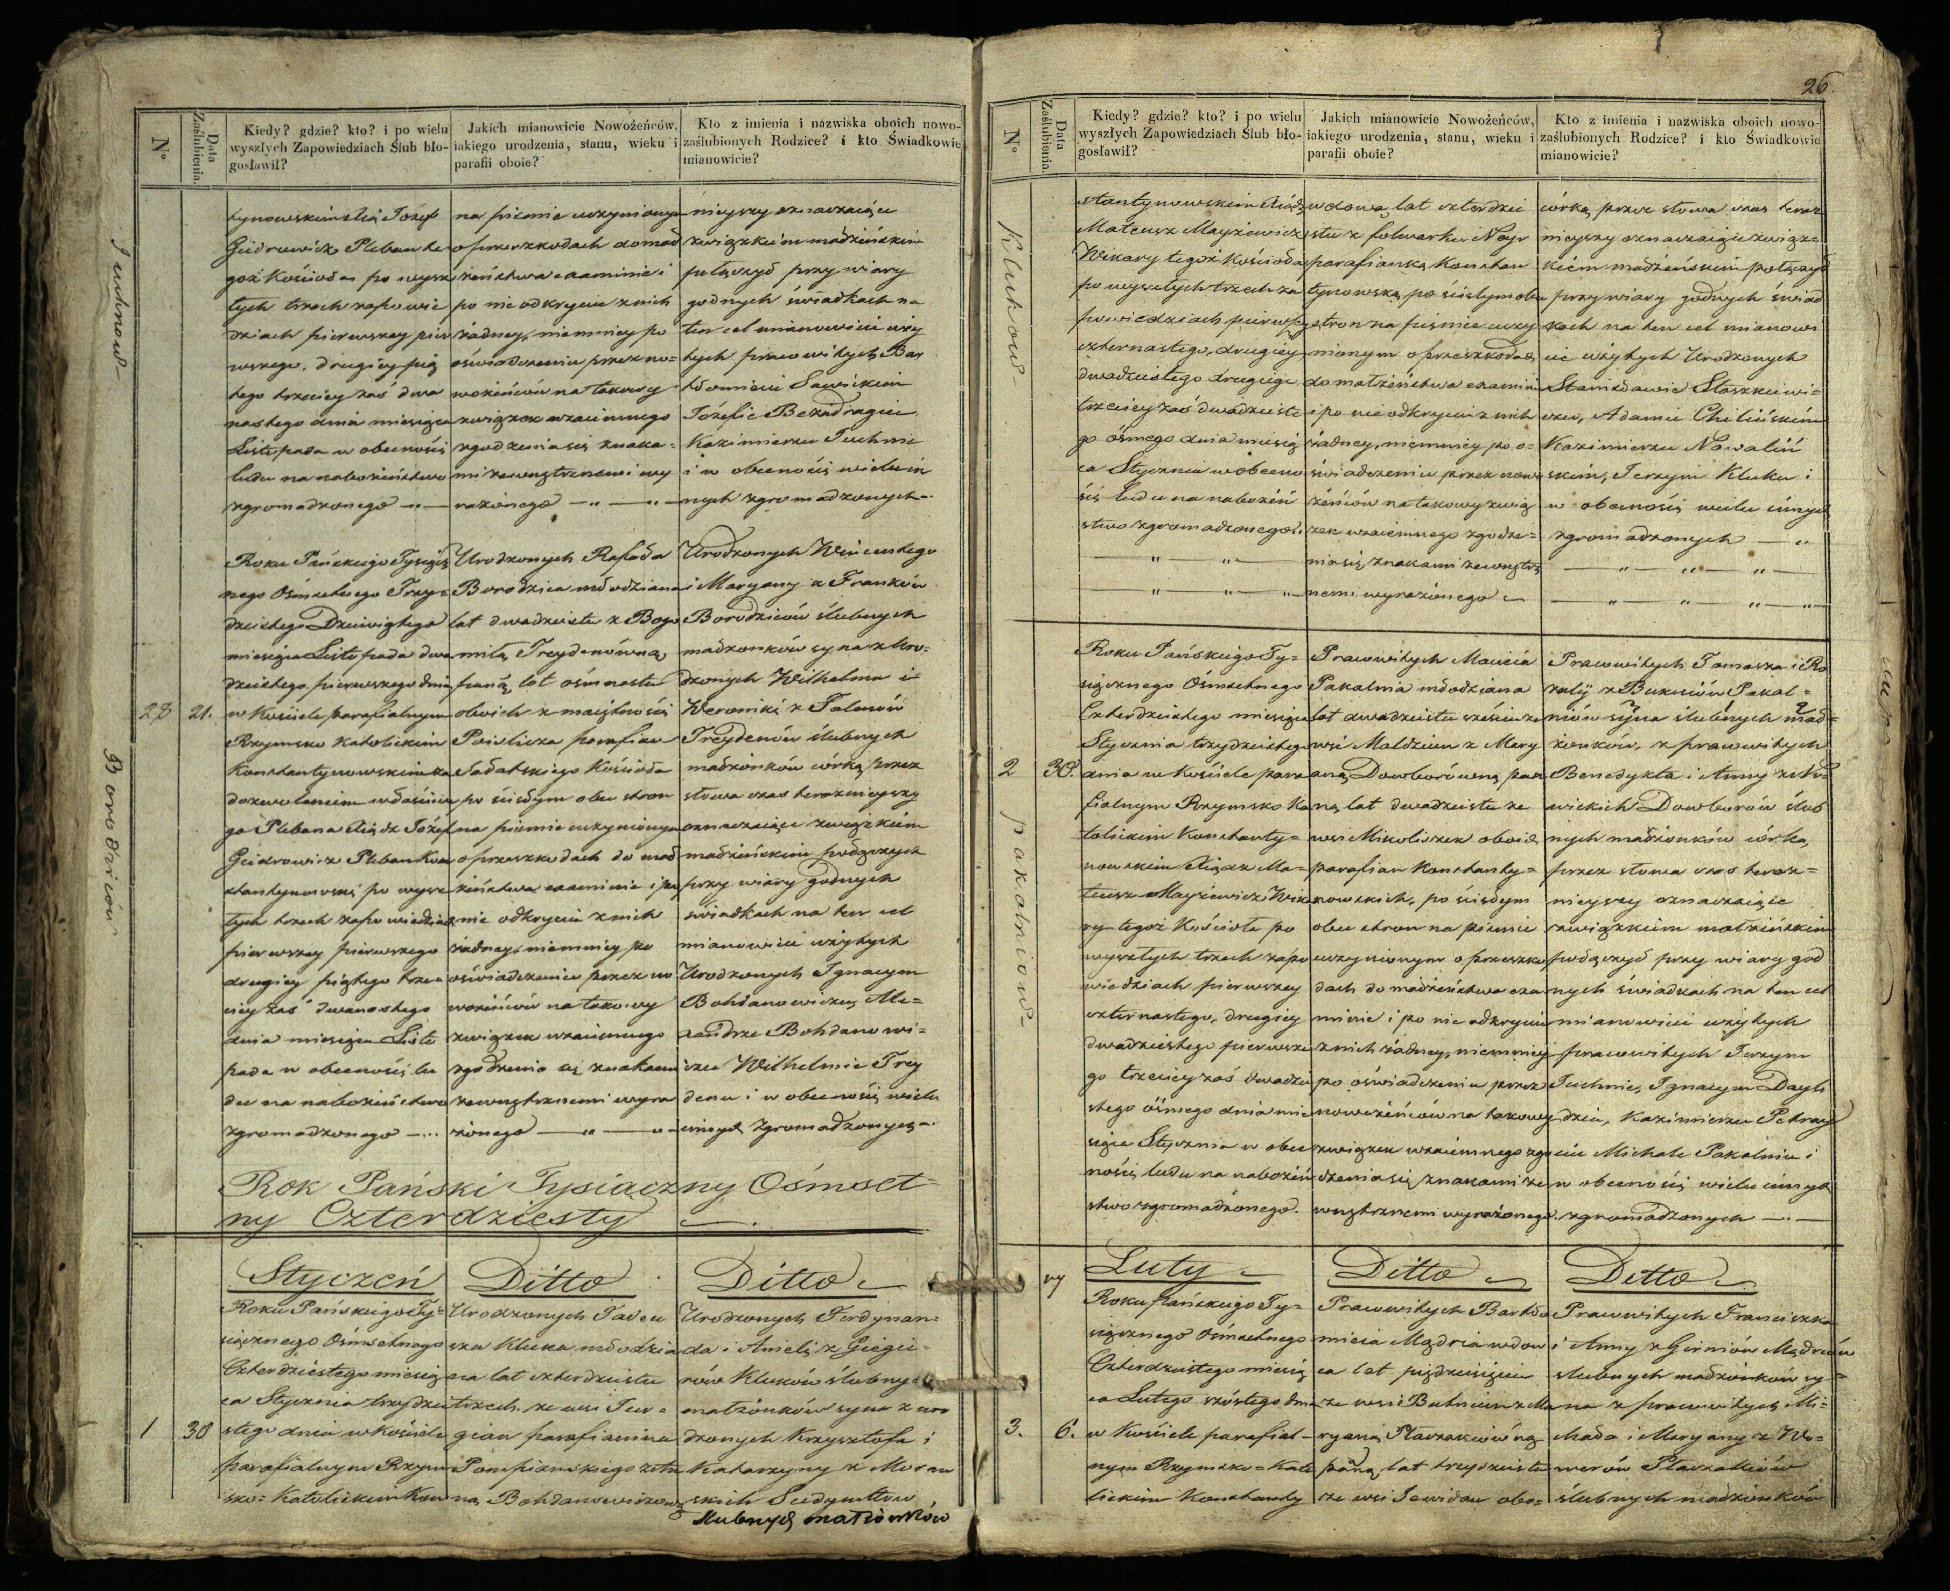 26
N°
Data Zaślubienia.
Kiedy? gdzie? kto? i po wielu
wyszłych Zapowiedziach Ślub bło-
gosławił?
Jakich mianowicie Nowożeńców,
iakiego urodzenia, stanu, wieku i
parafii oboie?
Kto z imienia i nazwiska oboich nowo-
zaślubionych Rodzice? i kto Świadkowie
mianowicie?
Juchnow
tynowskim Xiądz Józef
Giedrowicz Pleban te
goż Kościoła po wysz
łych trzech zapowie
dziach pierwszey, pier
wszego, drugiey pią
tego trzeciey zaś dwa
nastego dnia miesiąca
Listopada w obecności
ludu na nabożeństwo
zgromadzonego
na piśmie uczynionym
o przeszkodach do mał
żeństwa examinie i
po nie odkryciu z nich
żadney, niemniey po
oświadczeniu przez no-
wożeńców na takowy
związek wzaiemnego
zgodzenia się znaka-
mi zewnętrznemi wy
rażonego
nieyszy oznaczaiące
związkiem małżeńskim
połączył przy wiary
godnych świadkach na
ten cel mianowicie uży
tych pracowitych Bar
tłomieiu Sawickim
Józefie Bezdragiu
Kazimierzu Juchnie
i w obecności wielu in
nych zgromadzonych
Borodziców
28
21.
Roku Pańskiego Tysiącz
nego Ośmsetnego Trzy-
dziestego Dziewiątego
miesiąca Listopada dwu
dziestego pierwszego dnia
w Kościele parafialnym
Rzymsko Katolickim
Konstantynowskim za
dozwoleniem właściwe
go Plebana Xiądz Józef
Giedrowicz Pleban Kon
stantynowski po wysz
łych trzech zapowiedziach
pierwszey pierwszego
drugiey piątego trze-
ciey zaś dwanastego
dnia miesiąca Listo
pada w obecności lu
du na nabożeństwo
zgromadzonego
Urodzonych Rafała
Borodzica młodziana
lat dwadziestu z Bogu
miłą Treydenówną
panną lat ośmnastu
oboich z maiętności
Poislicza parafian
Sałatskiego Kościoła
po ścisłym obu stron
na piśmie uczynionym
o przeszkodach do mał
żeństwa examinie i po
nie odkryciu z nich
żadney, niemniey po
oświadczeniu przez no
wożeńców na takowy
związek wzaiemnego
zgodzenia się znakami
zewnętrznemi wyra
żonego
Urodzonych Wincentego
i Maryany z Franków
Borodziców ślubnych
małżonków syna z Uro-
dzonych Wilhelma i
Weroniki z Talenów
Treydenów ślubnych
małżonków córką przez
słowa czas teraznieyszy
oznaczaiące związkiem
małżeńskim połączył
przy wiary godnych
świadkach na ten cel
mianowicie użytych
Urodzonych Ignacym
Bohdanowiczu, Ale-
xandrze Bohdanowi-
czu Wilhelmie Trey
denu i w obecności wielu
innych zgromadzonych
Rok Pański Tysiączny Ośmset-
ny Czterdziesty
Styczeń Ditto Ditto
1
30
Roku Pańskiego Ty-
siącznego Ośmsetnego
Czterdziestego miesią
ca Stycznia trzydzie
stego dnia w Kościele
parafialnym Rzym
sko-Katolickim Kon
Urodzonych Tadeu
sza Kluka młodzia
na lat czterdziestu
trzech ze wsi Jur-
gian parafianina
Pompianskiego z etn
ną Bohdanowiczow
Urodzonych Ferdynan-
da i Anieli z Giegie-
rów Kluków ślubnych
małżonków syna z uro
dzonych Krzysztofa i
Katarzyny z Moraw
skich Sudymtów
ślubnych małżonków
N°
Data Zaślubienia.
Kiedy? gdzie? kto? i po wielu
wyszłych Zapowiedziach Ślub bło-
gosławił?
Jakich mianowicie Nowożeńców,
iakiego urodzenia, stanu, wieku i
parafii oboie?
Kto z imienia i nazwiska oboich nowo-
zaślubionych Rodzice? i kto Świadkowie
mianowicie?
Klukow
stantynowskim Xiądz
Mateusz Mayżewicz
Wikary tegoż Kościoła
po wyszłych trzech za
powiedziach pierwszey
czternastego, drugiey
dwadziestego drugiego
trzeciey zaś dwadzieste
go ósmego dnia miesią
ca Stycznia w obecno
ści ludu na nabożeń
stwo zgromadzonego
wdową lat czterdzie
stu z folwarku Neyr
parafianką Konstan
tynowską, po ścisłym obu
stron na piśmie uczy
nionym o przeszkodach
do małżeństwa examin
i po nie odkryciu z nich
żadney, niemniey po o-
świadczeniu przez nowo
żeńców na takowy zwią
zek wzaiemnego zgodze-
nia się znakami zewnętrz
nemi wyrażonego
córką przez słowa czas teraz
nieyszy oznaczaiące związ-
kiem małżeńskim połączył
przy wiary godnych świad
kach na ten cel mianowi
cie użytych Urodzonych
Stanisławie Staszkiewi-
czu, Adamie Chilińskim
Kazimierzu Nowaliń
skim, Jerzym Kluku i
w obecności wielu innych
zgromadzonych
Pakalniow
2
30.
Roku Pańskiego Ty-
siącznego Ośmsetnego
Czterdziestego miesiąca
Stycznia trzydziestego
dnia w Kościele para
fialnym Rzymsko Ka
tolickim Konstanty-
nowskim Xiądz Ma-
teusz Mayżewicz Wika
ry tegoż Kościoła po
wyszłych trzech zapo
wiedziach pierwszey
czternastego, drugiey
dwadziestego pierwsze
go trzeciey zaś dwadzie
stego ósmego dnia mie
siąca Stycznia w obec
ności ludu na nabożeń
stwo zgromadzonego.
Pracowitych Macieia
Pakalnia młodziana
lat dwadziestu sześciu ze
wsi Maldziun z Mary
anną Dowborówną pan
ną lat dwadziestu ze
wsi Mikoliszek oboich
parafian Konstanty-
nowskich, po ścisłym
obu stron na piśmie
uczynionym o przeszko
dach do małżeństwa exa
minie i po nie odkryciu
z nich żadney, niemniey
po oświadczeniu przez
nowożeńców na takowy
związek wzaiemnego zgo
dzenia się znakami ze
wnętrznemi wyrażonego.
Pracowitych Tomasza i Ro
zalij z Bukniów Pakal-
niów syna ślubnych mał-
żonków, z pracowitych
Benedykta i Anny z No-
wickich Dowborów ślub
nych małżonków córką,
przez słowa czas teraz-
nieyszy oznaczaiące
związkiem małżeńskim
połączył przy wiary god
nych świadkach na ten cel
mianowicie użytych
pracowitych Jerzym
Juchnie, Ignacym Dayli
dziu, Kazimierzu Petray
ciu Michale Pakalniu i
w obecności wielu innych
zgromadzonych
Luty Ditto Ditto
3.
6.
Roku Pańskiego Ty-
siącznego Ośmsetnego
Czterdziestego miesią
ca Lutego szóstego dnia
w Kościele parafial-
nym Rzymsko-Kato
lickim Konstanty
Pracowitych Bartło
mieia Mądria wdow
ca lat pięćdziesięciu
ze wsi Butniun z Ma
ryanną Płaczakówną
panną lat trzydziestu
ze wsi Jewidan obo-
Pracowitych Franciszka
i Anny z Girniów Mądriów
ślubnych małżonków sy-
na z pracowitych Mi-
chała i Maryany z Wo-
werów Płaczaków
ślubnych małżonków